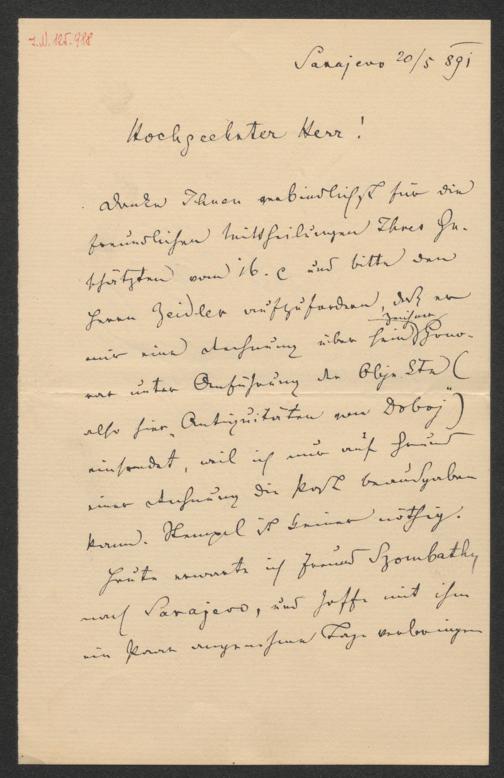 I.N. 125.918
Sarajevo 20/5 891
Hochgeehrter Herr!
Danke Ihnen verbindlichst für die
freundlichen Mittheilungen Ihres Ge-
schätzten vom 16. c und bitte den
Herrn Zeidler aufzufordern, daß er
mir eine Rechnung über sein Zeichner Hono-
rar unter Anführung der Objecte (
also hier „Antiquitäten von Doboj")
einsendet, weil ich nur auf Grund
einer Rechnung die Post beausgaben
kann. Stempel ist keiner nöthig.
Heute erwarte ich Freund Szombathy
nach Sarajevo, und hoffe mit ihm
ein Paar angenehme Tage verbringen